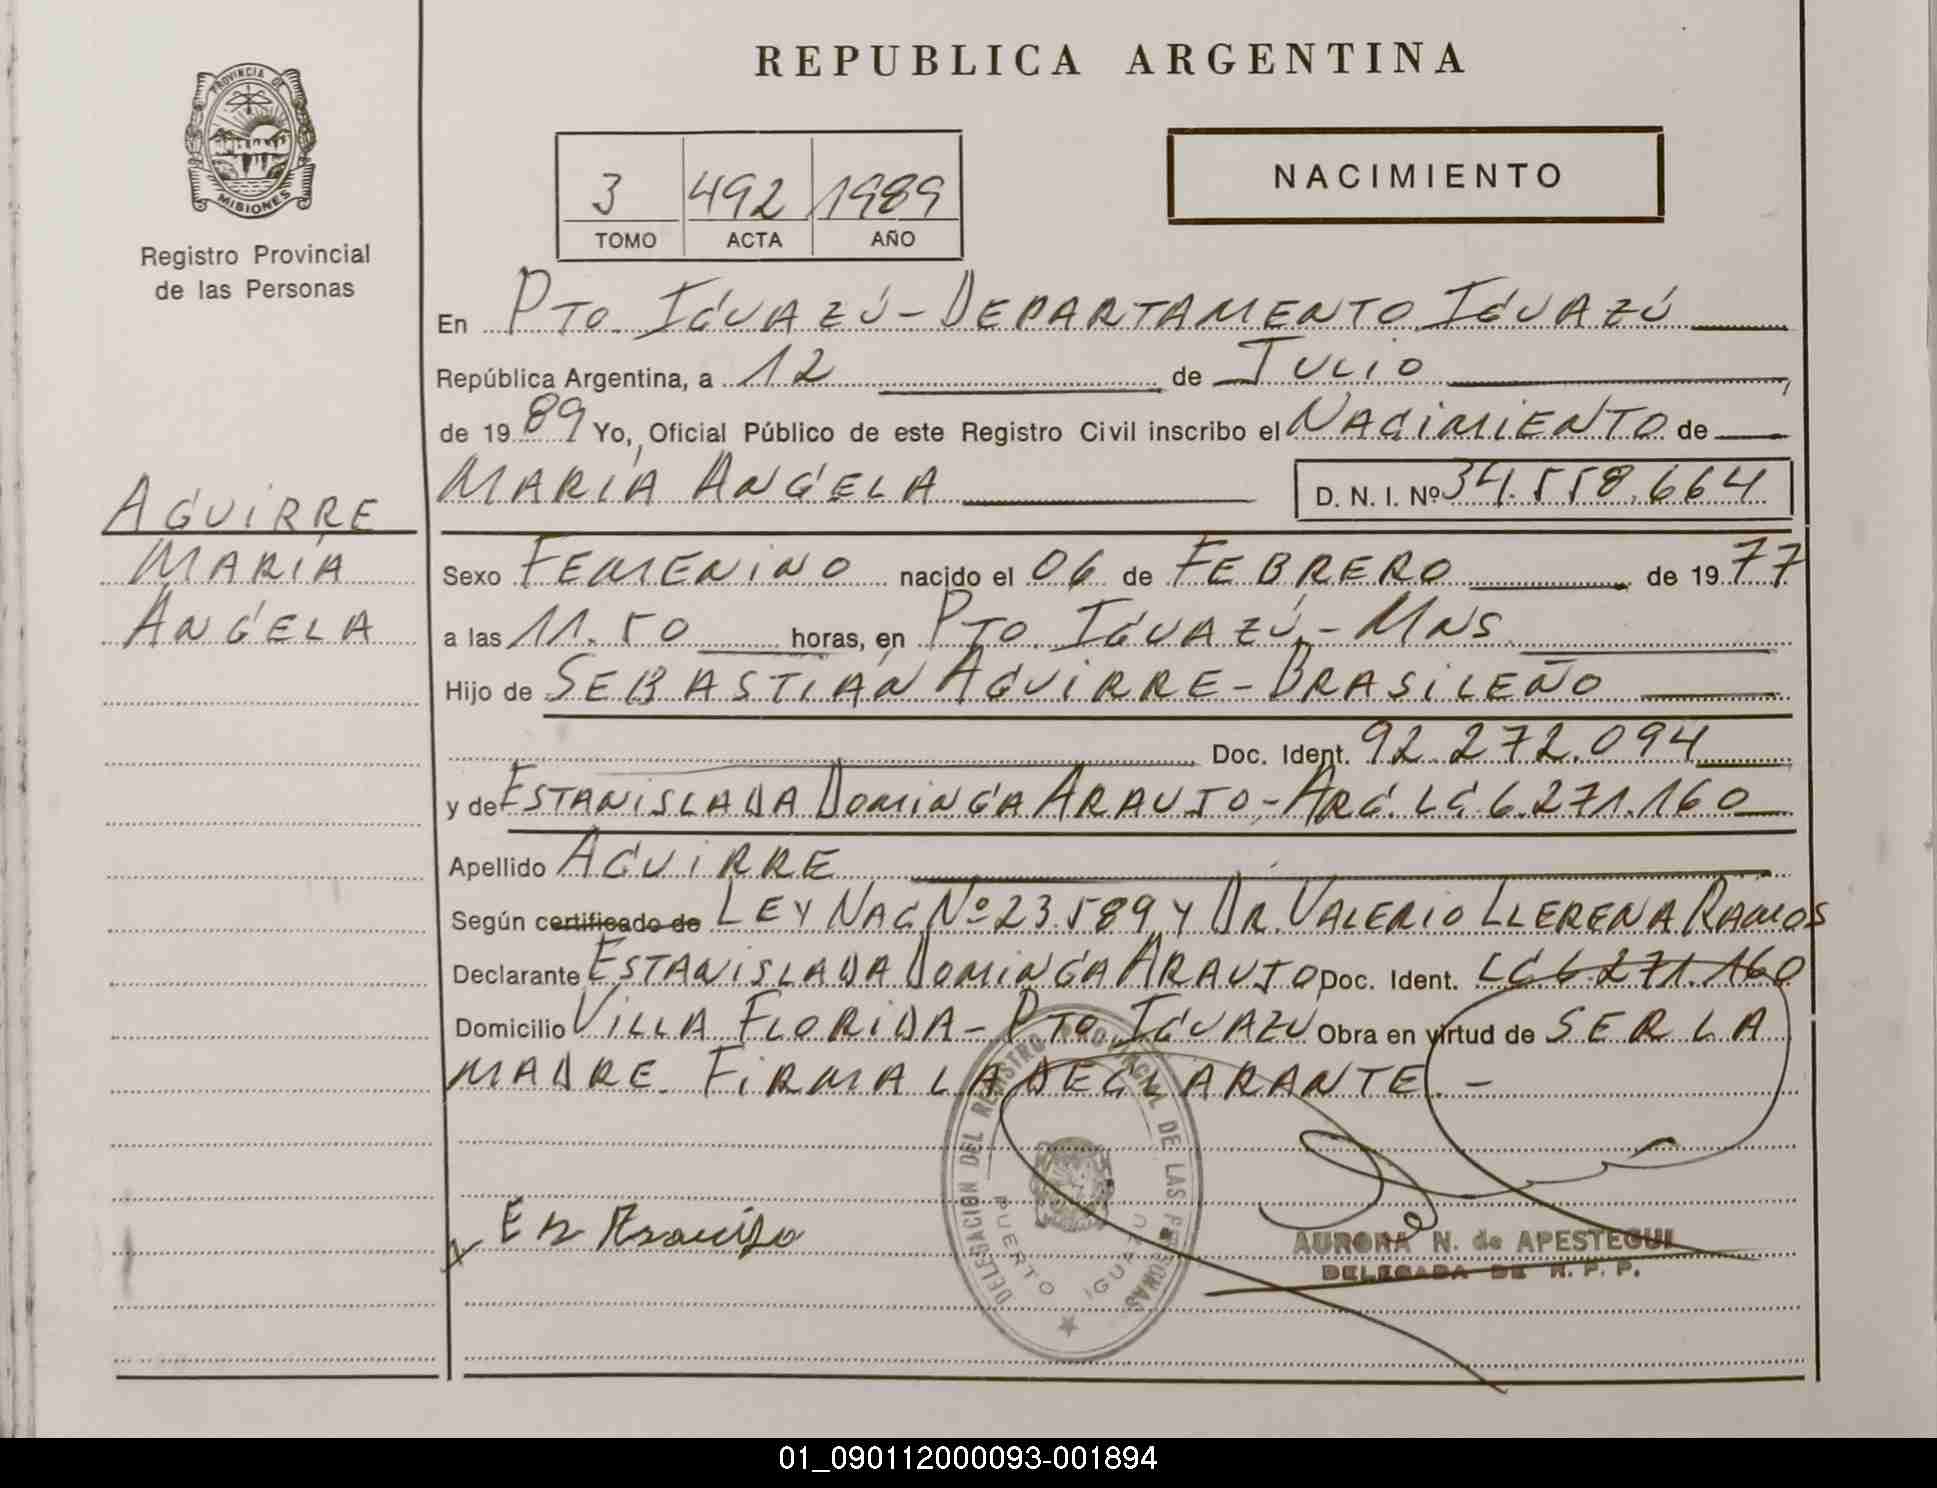 REPUBLICA ARGENTINA
PROVINCIA DE
MISIONES
Registro Provincial
de las Personas
3 492 1989
TOMO ACTA AÑO
NACIMIENTO
En Pto. Iguazú - Departamento Iguazú
República Argentina, a 12 de Julio
de 1989 Yo, Oficial Público de este Registro Civil inscribo el Nacimiento de
María Angela D. N. I. Nº 34.558.664
Aguirre
María
Angela
Sexo Femenino nacido el 06 de Febrero de 1977
a las 11.50 horas, en Pto. Iguazú - Mns
Hijo de Sebastián Aguirre - Brasileño
Doc. Ident. 92.272.094
y de Estanislada Dominga Araujo - Arg. LC. 6.271.160
Apellido Aguirre
Según certificado de Ley Nac Nº 23.589 y Dr. Valerio Llerena Ramos
Declarante Estanislada Dominga Araujo Doc. Ident. LC. 6.271.160
Domicilio Villa Florida - Pto Iguazu Obra en virtud de ser la
madre. Firma la declarante. -
DELEGACION DEL REGISTRO PROVINCIAL DE LAS PERSONAS
PUERTO IGUAZU
AURORA N. de APESTEGUI
DELEGADA DE R. P. P.
01_090112000093-001894